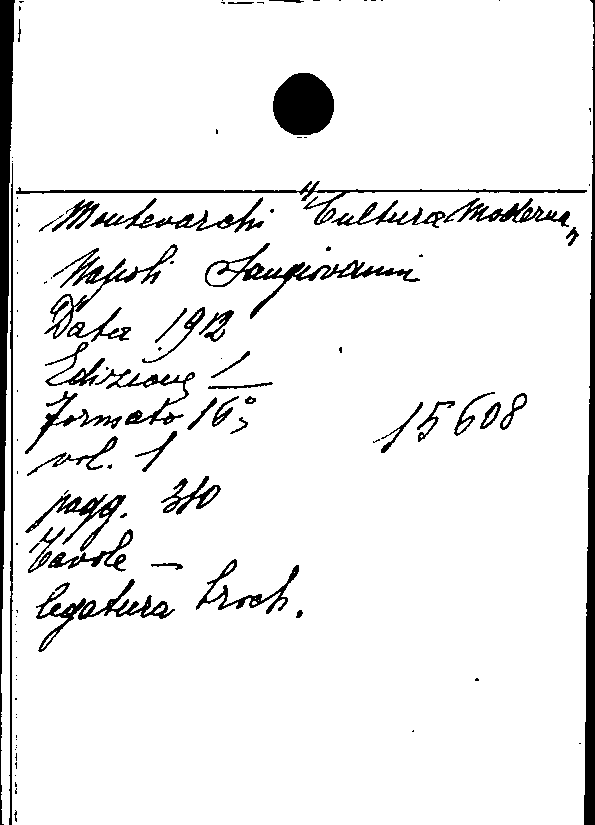 Montevarchi "Cultura Moderna"
Napoli Sangiovanni
Data 1912
Edizione 1
formato 16°
15608
vol. 1
pagg. 310
Tavole —
legatura broch.